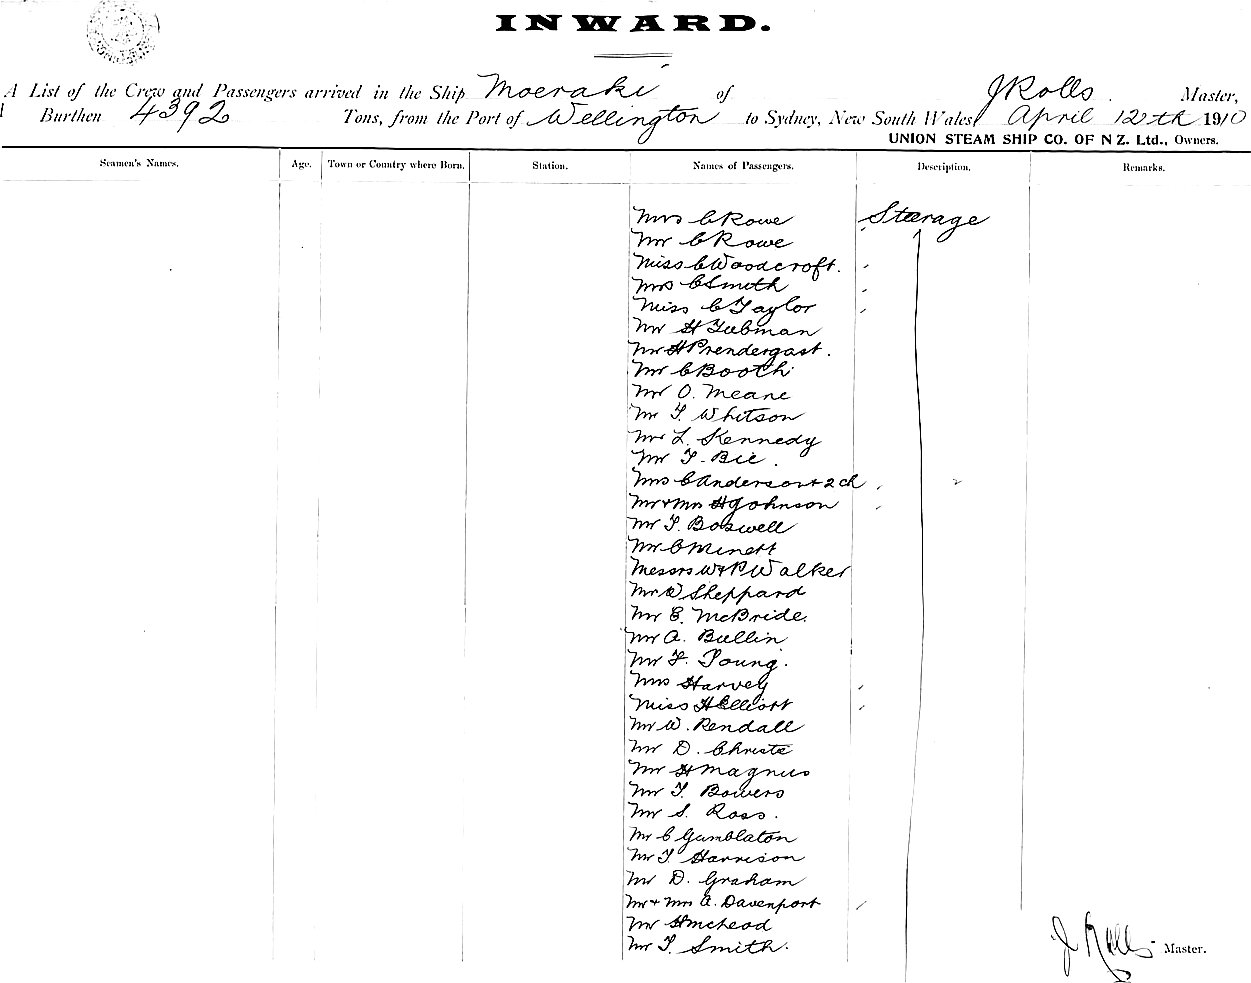 INWARD.
A List of the Crew and Passengers arrived in the Ship Moeraki of J Rolls. Master,
Burthen 4392 Tons, from the Port of Wellington to Sydney, New South Wales, April 12th 1910
UNION STEAM SHIP CO. OF N Z. Ltd., Owners.
Seamen's Names. Age. Town or Country where Born. Station. Names of Passengers. Description. Remarks.
Mrs C Rowe Steerage
Mr C Rowe
Miss C Woodcroft.
Mrs C Smith
Miss C Taylor
Mr H Tubman
Mr H Prendergast.
Mr C Booth
Mr O. Meane
Mr T. Whitson
Mr L. Kennedy
Mr T. Bie.
Mrs C Anderson + 2 ch
Mr + Mrs H Johnson
Mr T. Boswell
Mr C Minett
Messrs W & P Walker
Mr W Sheppard
Mr E. McBride.
Mr A. Bullin
Mr F. Young.
Mrs Harvey
Miss H Elliott
Mr W. Rendall
Mr D. Christe
Mr H Magnus
Mr T. Bowers
Mr S. Ross.
Mr C Gamblaton
Mr T. Harrison
Mr D. Graham
Mr + Mrs A. Davenport
Mr H McLeod
Mr T. Smith.
J Rolls Master.